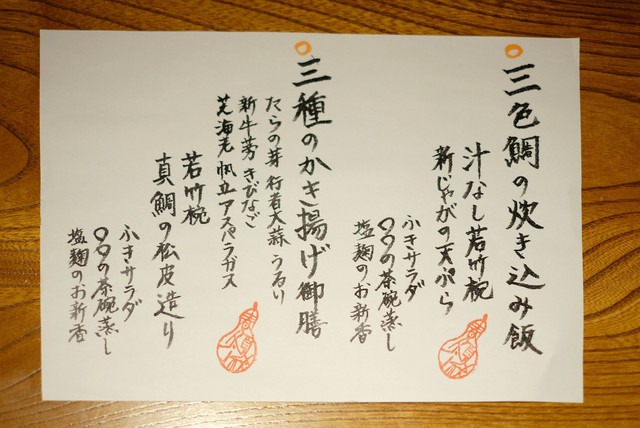 三色鯛の炊き込み飯
汁なし若竹椀
新じゃがの天ぷら
ふきサラダ
〇〇の茶碗蒸し
塩麹のお新香
三種のかき揚げ御膳
たらの芽 行者大蒜 うるい
新牛蒡 きびなご
芝海老 帆立 アスパラガス
若竹椀
真鯛の松皮造り
ふきサラダ
〇〇の茶碗蒸し
塩麹のお新香